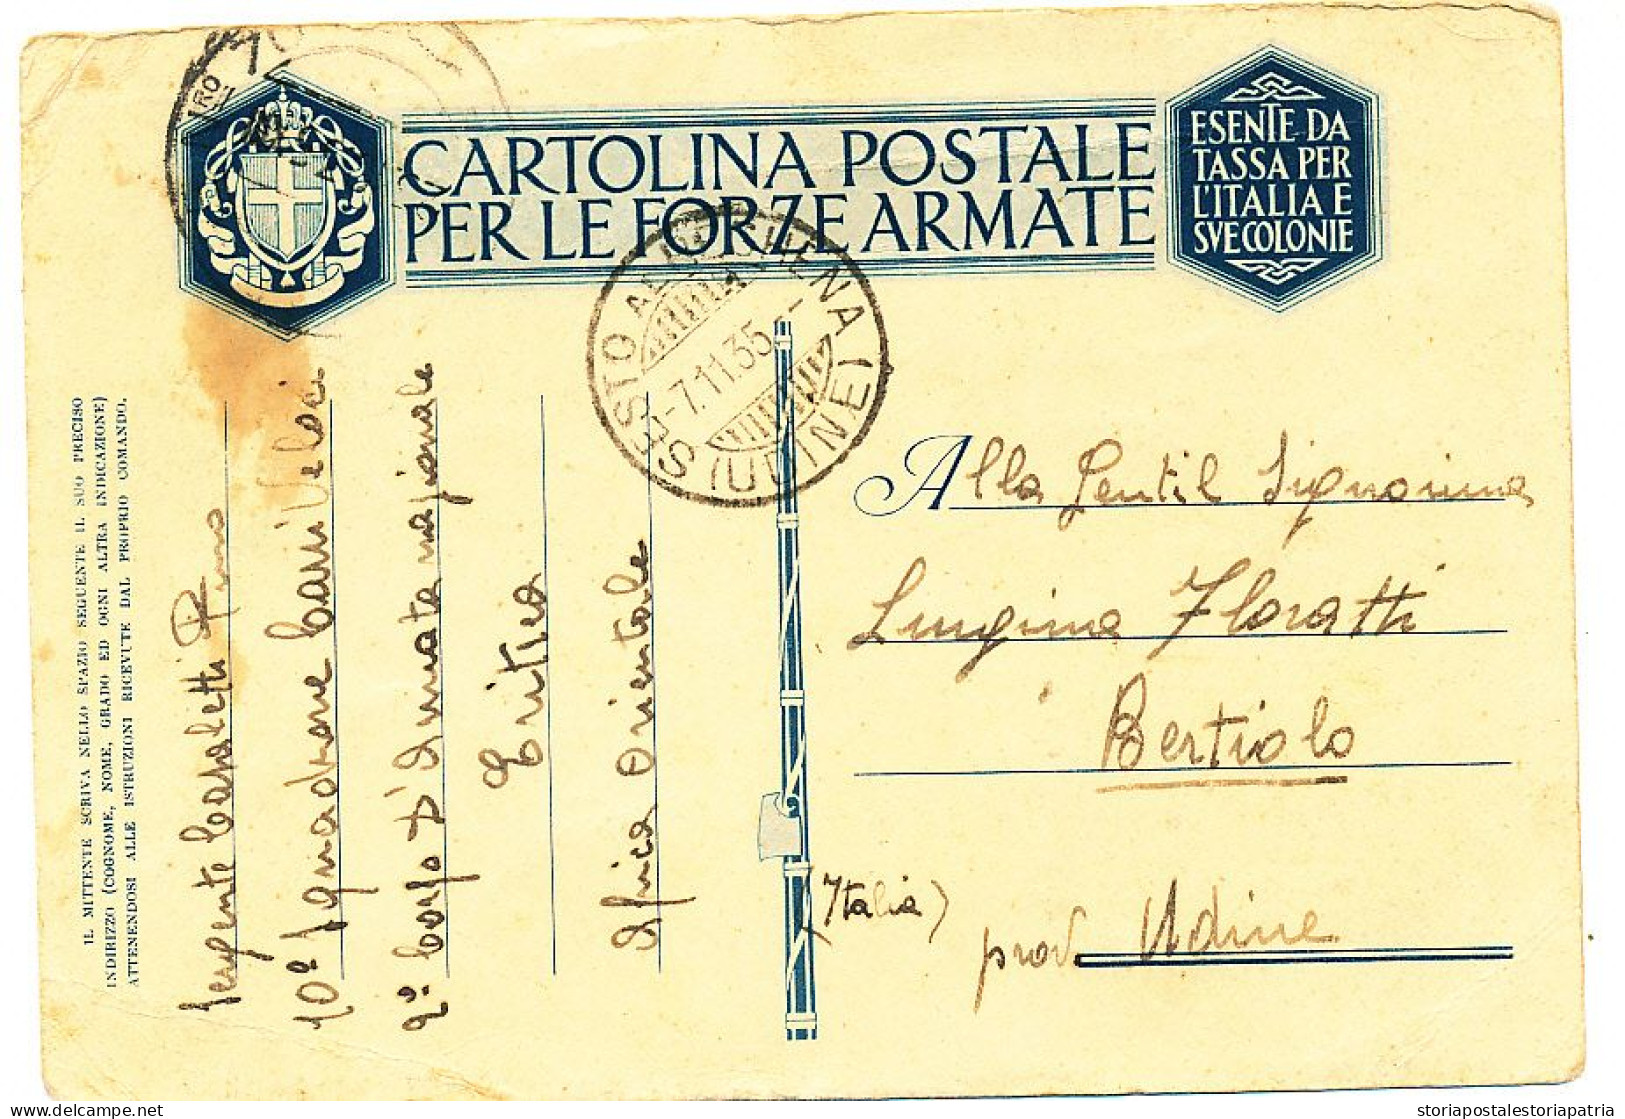 CARTOLINA POSTALE
PER LE FORZE ARMATE
ESENTE DA
TASSA PER
L'ITALIA E
SVE COLONIE
SESTO AL REGHENA
(UDINE)
-7.11.35
IL MITTENTE SCRIVA NELLO SPAZIO SEGUENTE IL SUO PRECISO
INDIRIZZO (COGNOME, NOME, GRADO ED OGNI ALTRA INDICAZIONE)
ATTENENDOSI ALLE ISTRUZIONI RICEVUTE DAL PROPRIO COMANDO.
Sergente
10ª Squadrone Carri Veloci
2º Corpo D'Armata nazionale
Eritrea
Africa Orientale
Alla Gentil Signorina
Luigina Floratti
Bertiolo
(Italia)
prov Udine
storiapostalestoriapatria